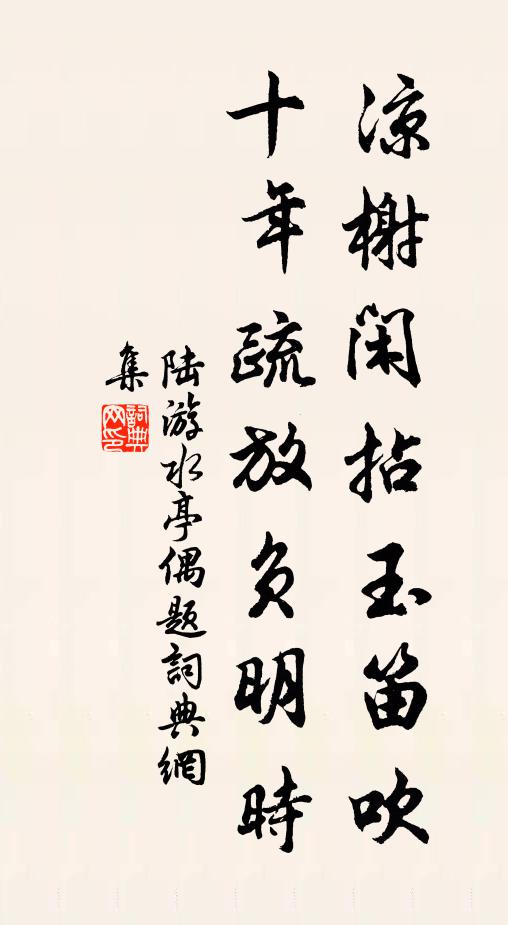 凉榭闲拈玉笛吹
十年疏放负明時
陆游水亭偶题詞典網
集
詞典
网印